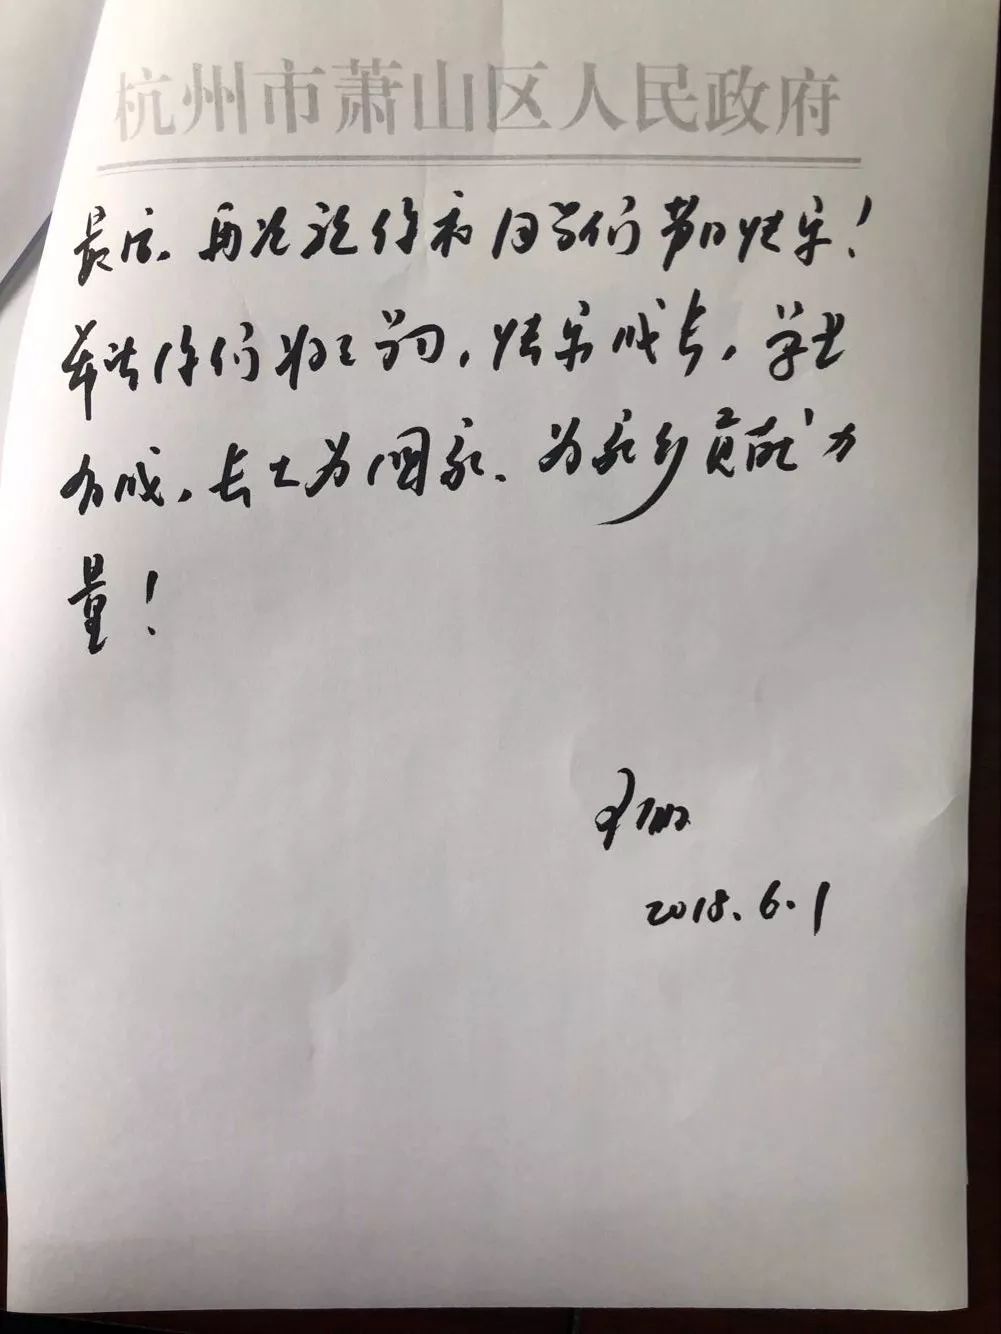 杭州市萧山区人民政府
最后，再次祝你和同学们节日快乐！
希望你们好好学习，快乐成长，学业
有成，长大为国家、为家乡贡献力
量！
2018.6.1